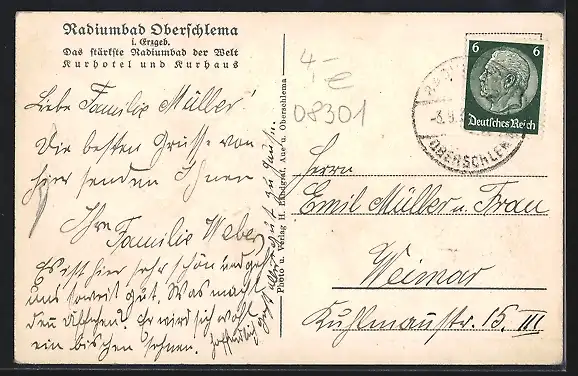 Radiumbad Oberschlema
i. Erzgeb.
Das stärkste Radiumbad der Welt
Kurhotel und Kurhaus
Liebe Familie Müller!
Die besten Grüsse von
hier senden Ihnen
Ihre
Familie Weber
Es ist hier sehr schön und geht
uns soweit gut. Was macht
denn
Er wird sich wohl
ein bischen sehnen.
hoffentlich geht alles gut zu Hause.
Photo u. Verlag H. Landgraf, Aue u. Oberschlema
4,- e
08301
6 6
Deutsches Reich
OBERSCHLEM
Herrn
Emil Müller u. Frau
Weimar
Kuhlmannstr. 15. III